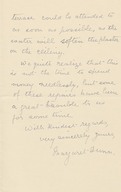 tenance needs to attended to
as soon as possible, as the
water will soften the plaster
on the ceiling.
We quite realize that this
is not the time to spend
money needlessly, but some
of these repairs have been
a great nuisance to us
for some time.
With kindest regards,
Very sincerely yours,
Margaret